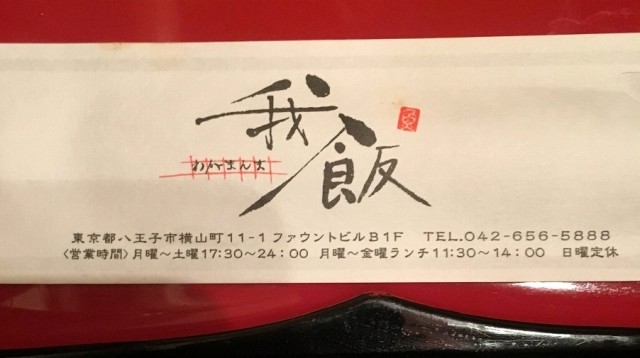 我飯
わがまんま
東京都八王子市横山町11-1 ファウントビルB1F TEL.042-656-5888
〈営業時間〉月曜〜土曜17:30〜24:00 月曜〜金曜ランチ11:30〜14:00 日曜定休